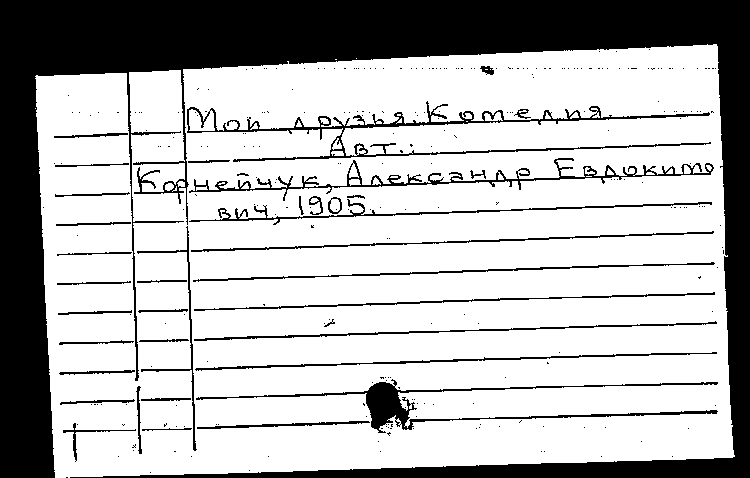 Мои друзья. Комедия.
Авт.:
Корнейчук, Александр Евдокимо
вич, 1905.